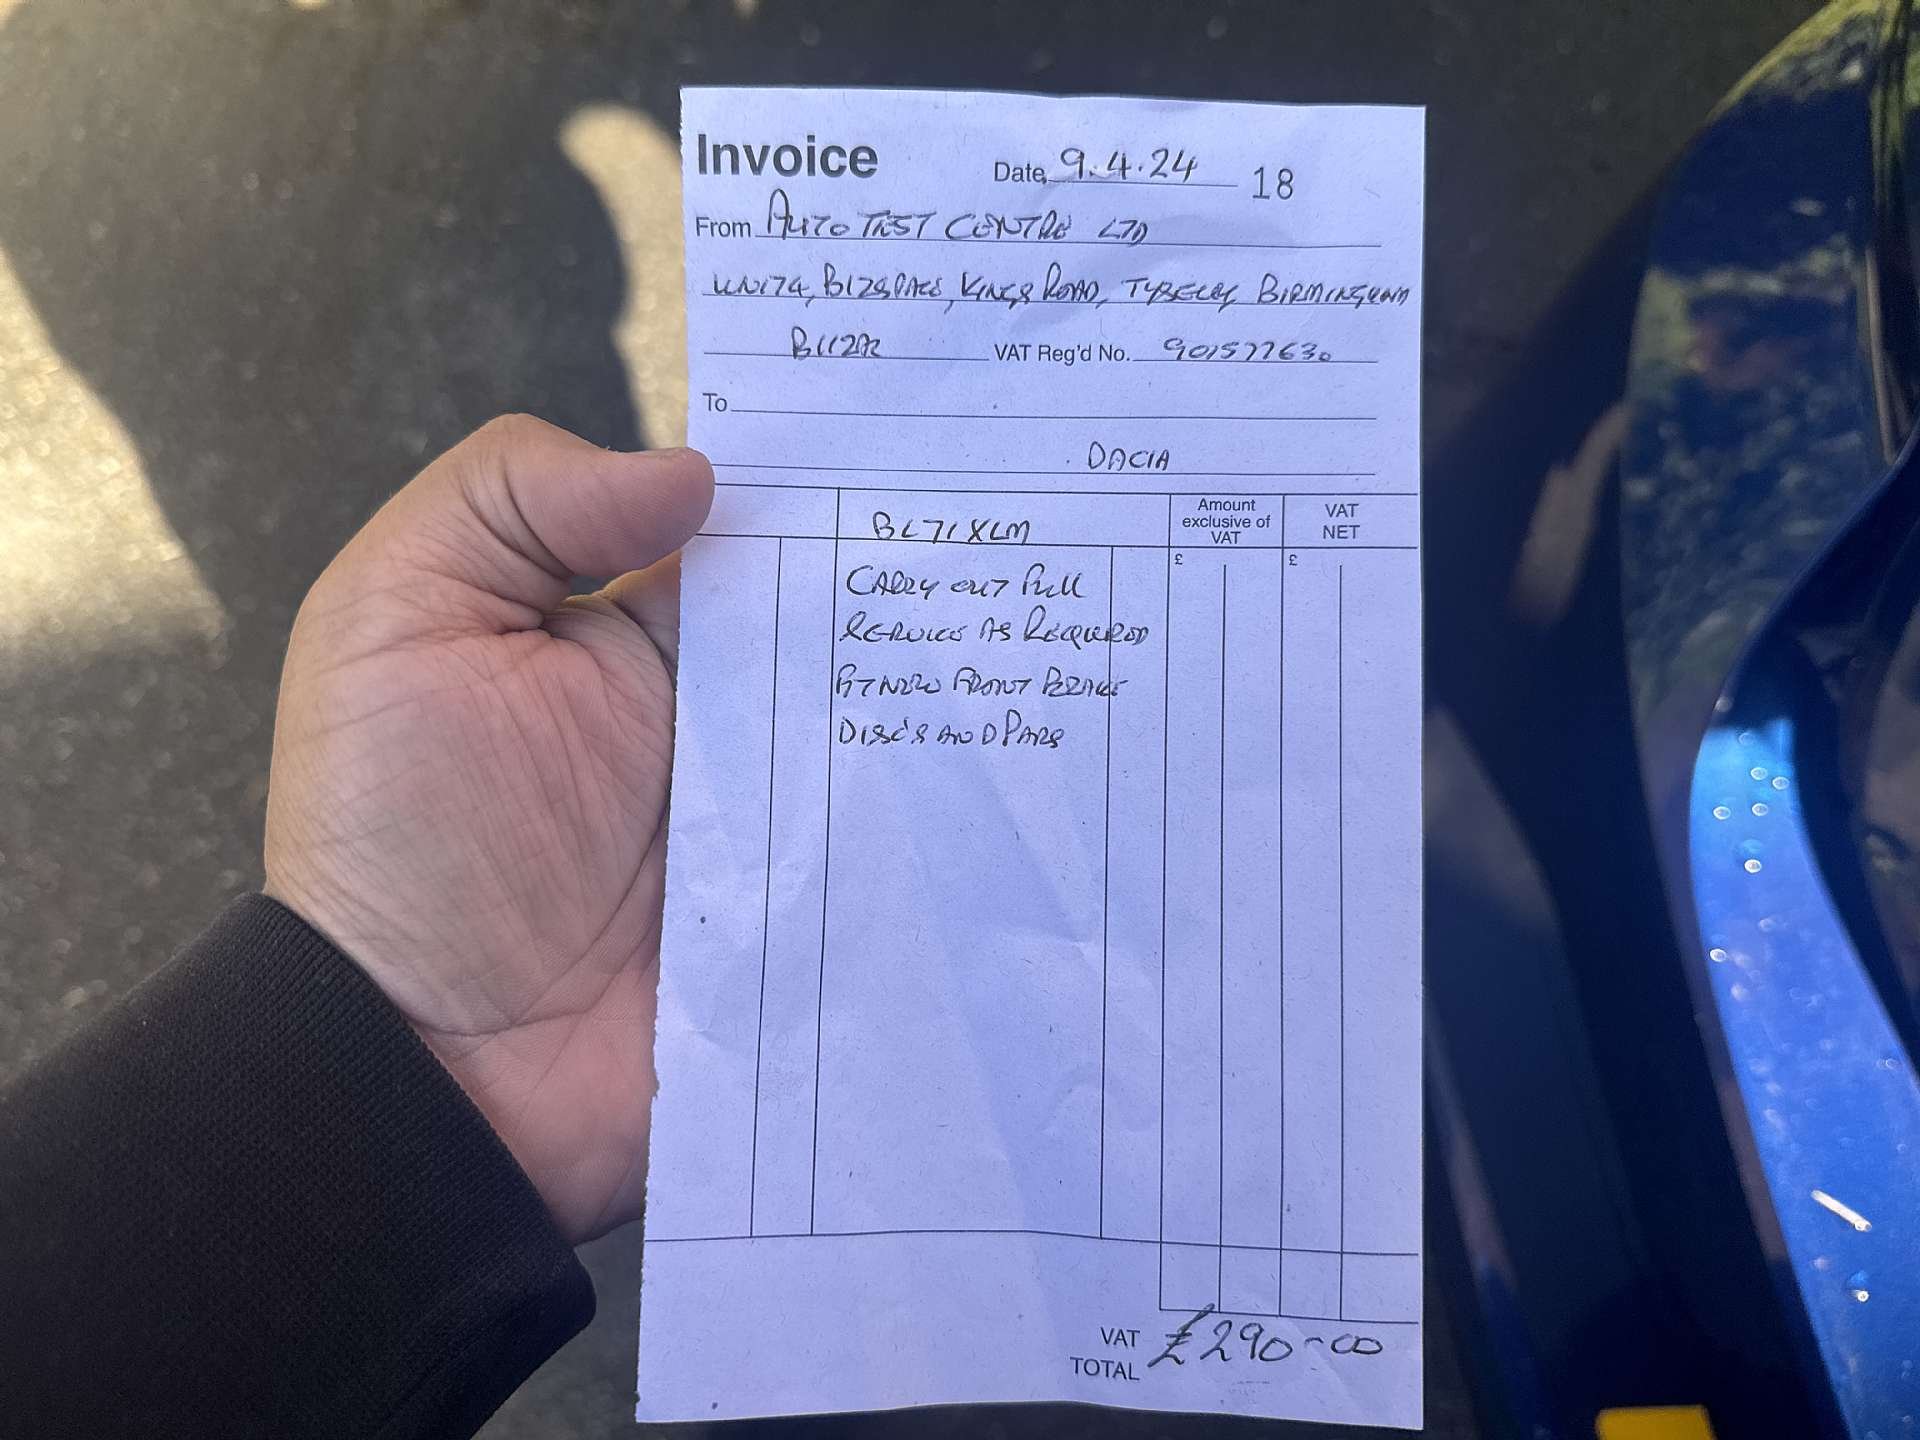 Invoice Date 9.4.24 18
From AUTO TEST CENTRE LTD
UNIT 4, BIZSPACE, KINGS ROAD, TYSELEY BIRMINGHAM
B112AL VAT Reg'd No. 901577630
To
DACIA
BL71XLM
Amount exclusive of VAT
VAT NET
£ £
CARRY OUT FULL
SERVICE AS REQUIRED
FIT NEW FRONT BRAKE
DISC'S AND PADS
VAT
TOTAL £290-00